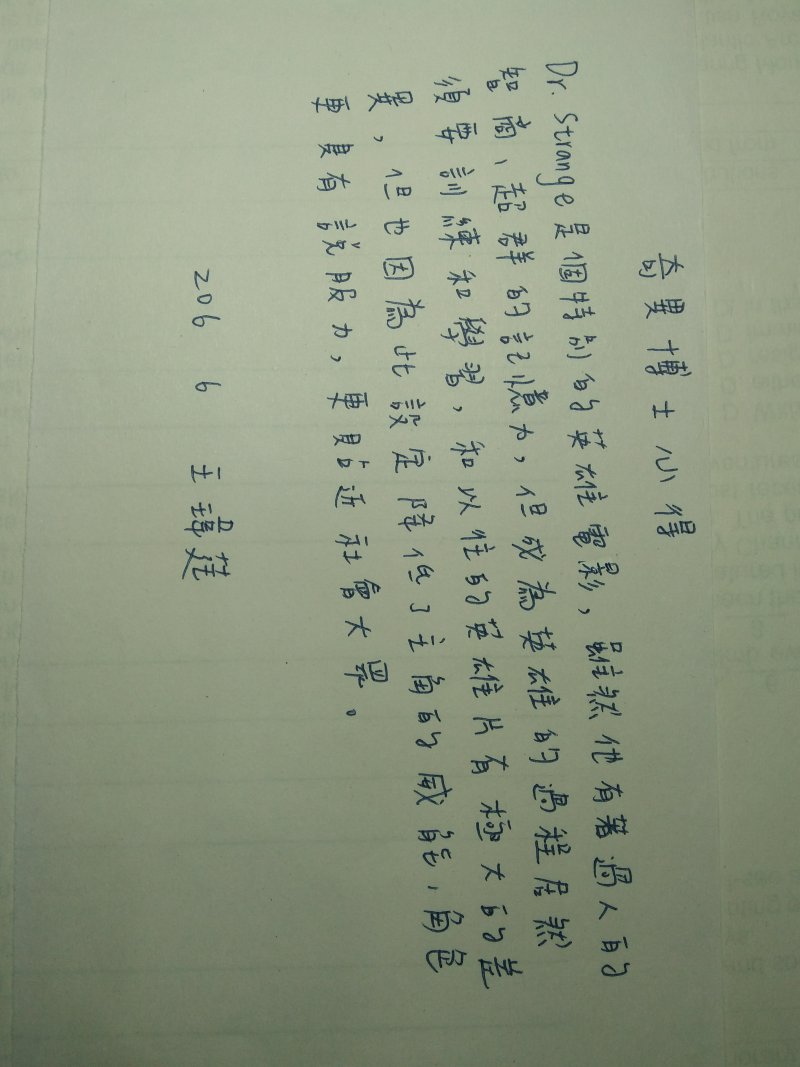 奇異博士心得
Dr. Strange是個特別的英雄電影，雖然他有著過人的
智商、超群的記憶力，但成為英雄的過程居然
須要訓練和學習，和以往的英雄片有極大的差
異，但也因為此設定降低了主角的威能，角色
更具有說服力，更貼近社會大眾。
206 6 王